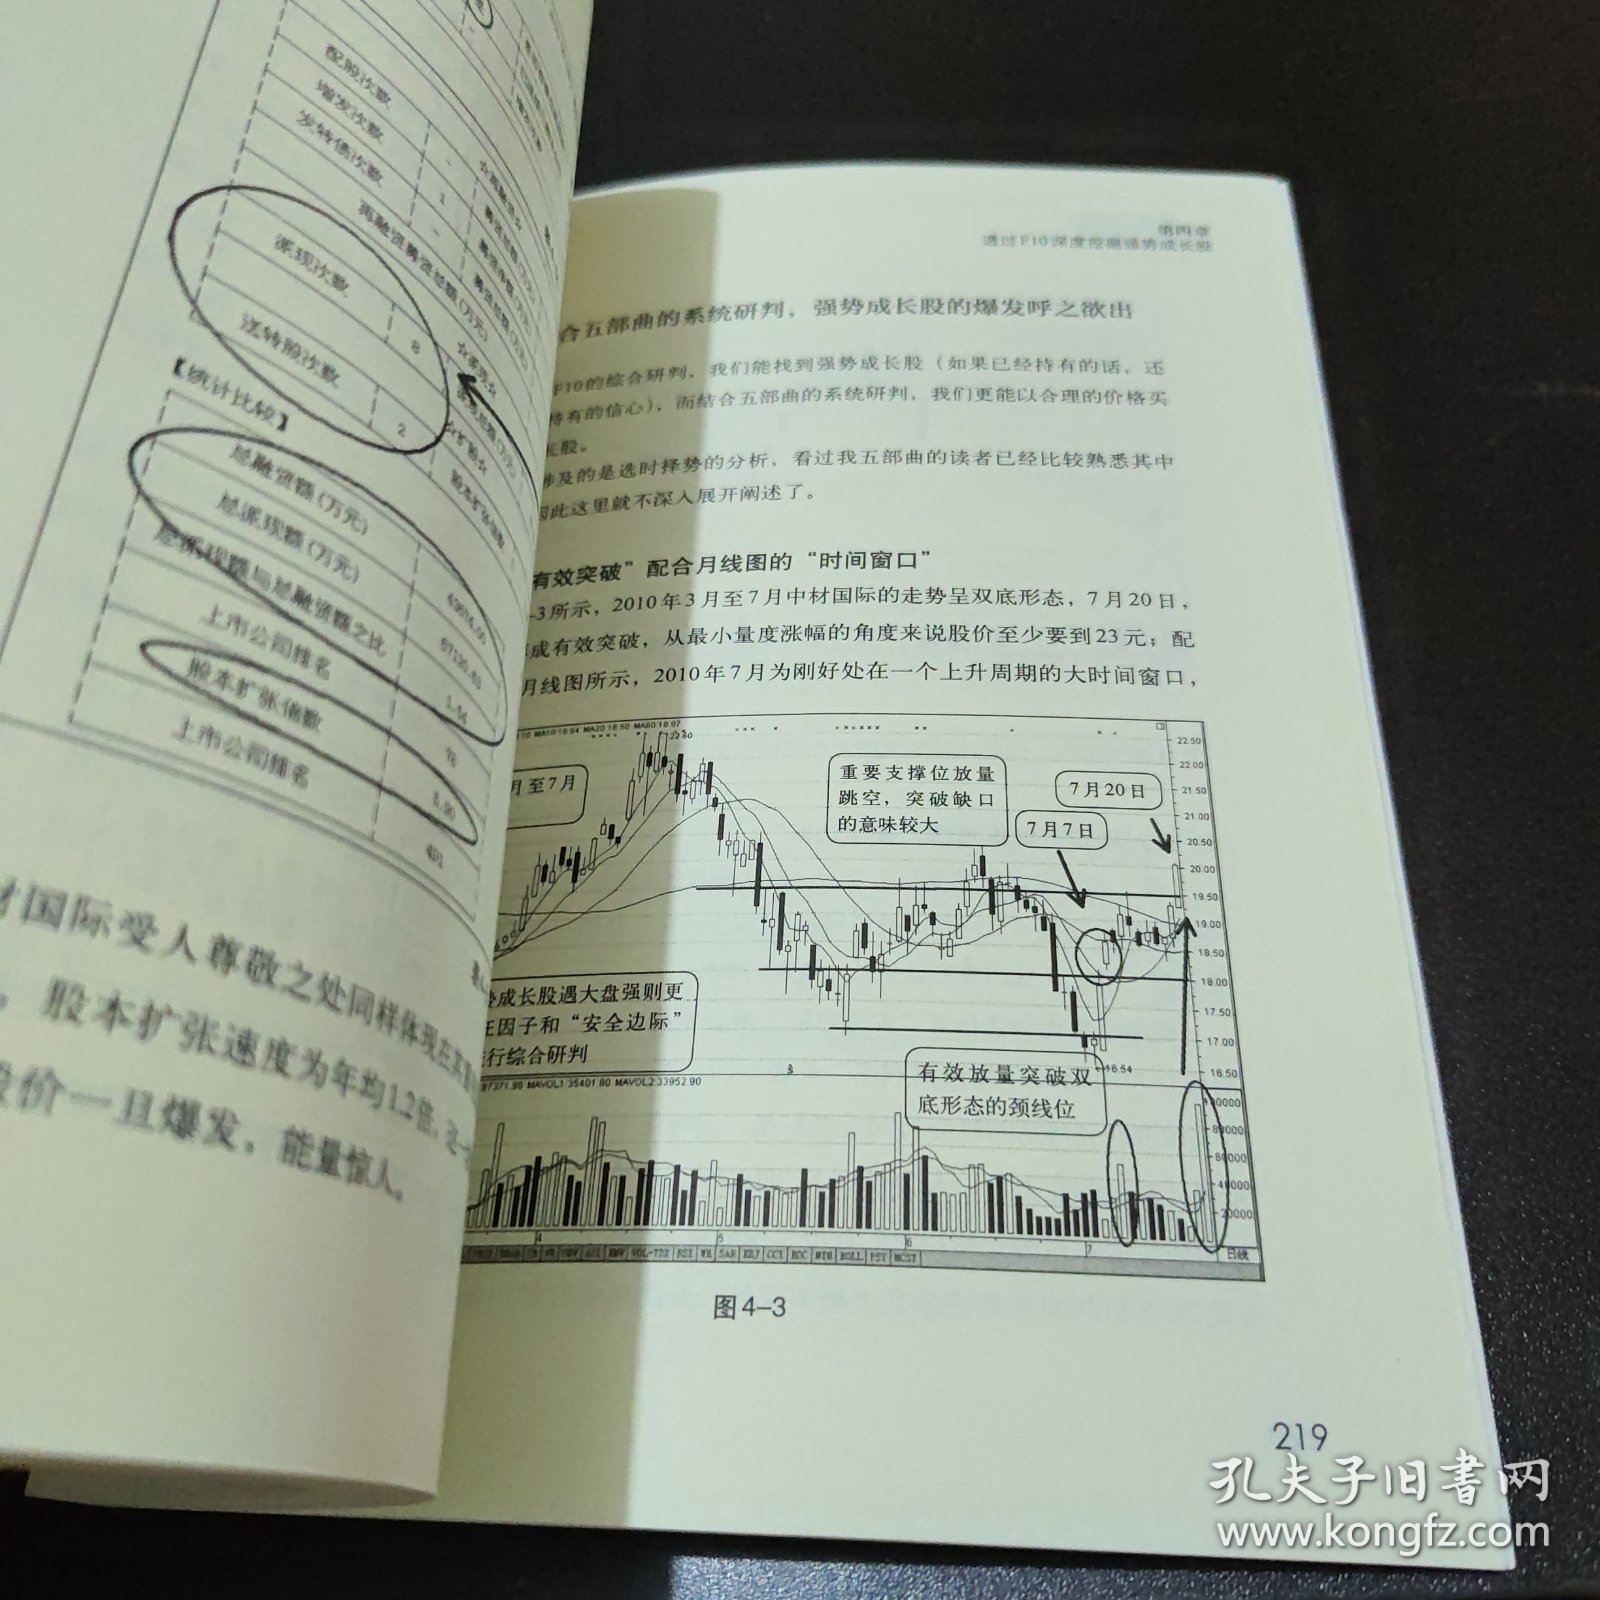 配股次数
-
增发次数
1
发转债次数
-
再融资募资总额(万元)
派现次数
8
送转股次数
2
【统计比较】
总融资额(万元)
总派现额(万元)
总派现额与总融资额之比
上市公司排名
股本扩张倍数
上市公司排名
材国际受人尊敬之处同样体现在其
。股本扩张速度为年均1.2倍，这一
股价一旦爆发，能量惊人。
第四章
透过F10深度挖掘强势成长股
合五部曲的系统研判，强势成长股的爆发呼之欲出
F10的综合研判，我们能找到强势成长股（如果已经持有的话，还
持有的信心），而结合五部曲的系统研判，我们更能以合理的价格买
长股。
涉及的是选时择势的分析，看过我五部曲的读者已经比较熟悉其中
因此这里就不深入展开阐述了。
有效突破”配合月线图的“时间窗口”
-3所示，2010年3月至7月中材国际的走势呈双底形态，7月20日，
成有效突破，从最小量度涨幅的角度来说股价至少要到23元；配
月线图所示，2010年7月为刚好处在一个上升周期的大时间窗口，
MA10:18.94 MA20:18.50 MA60:18.97
月至7月
重要支撑位放量
跳空，突破缺口
的意味较大
7月20日
7月7日
22.50
22.00
21.50
21.00
20.50
20.00
19.50
19.00
18.50
18.00
17.50
17.00
16.50
成长股遇大盘强则更
因子和“安全边际”
行综合研判
有效放量突破双
底形态的颈线位
16.54
MAVOL1:35401.80 MAVOL2:33952.90
80000
60000
40000
20000
4 5 6 7 日线
VOL-TDX RSI WR SAR KDJ CCI ROC MTM BOLL PSY MCST
图4-3
219
孔夫子旧书网
www.kongfz.com